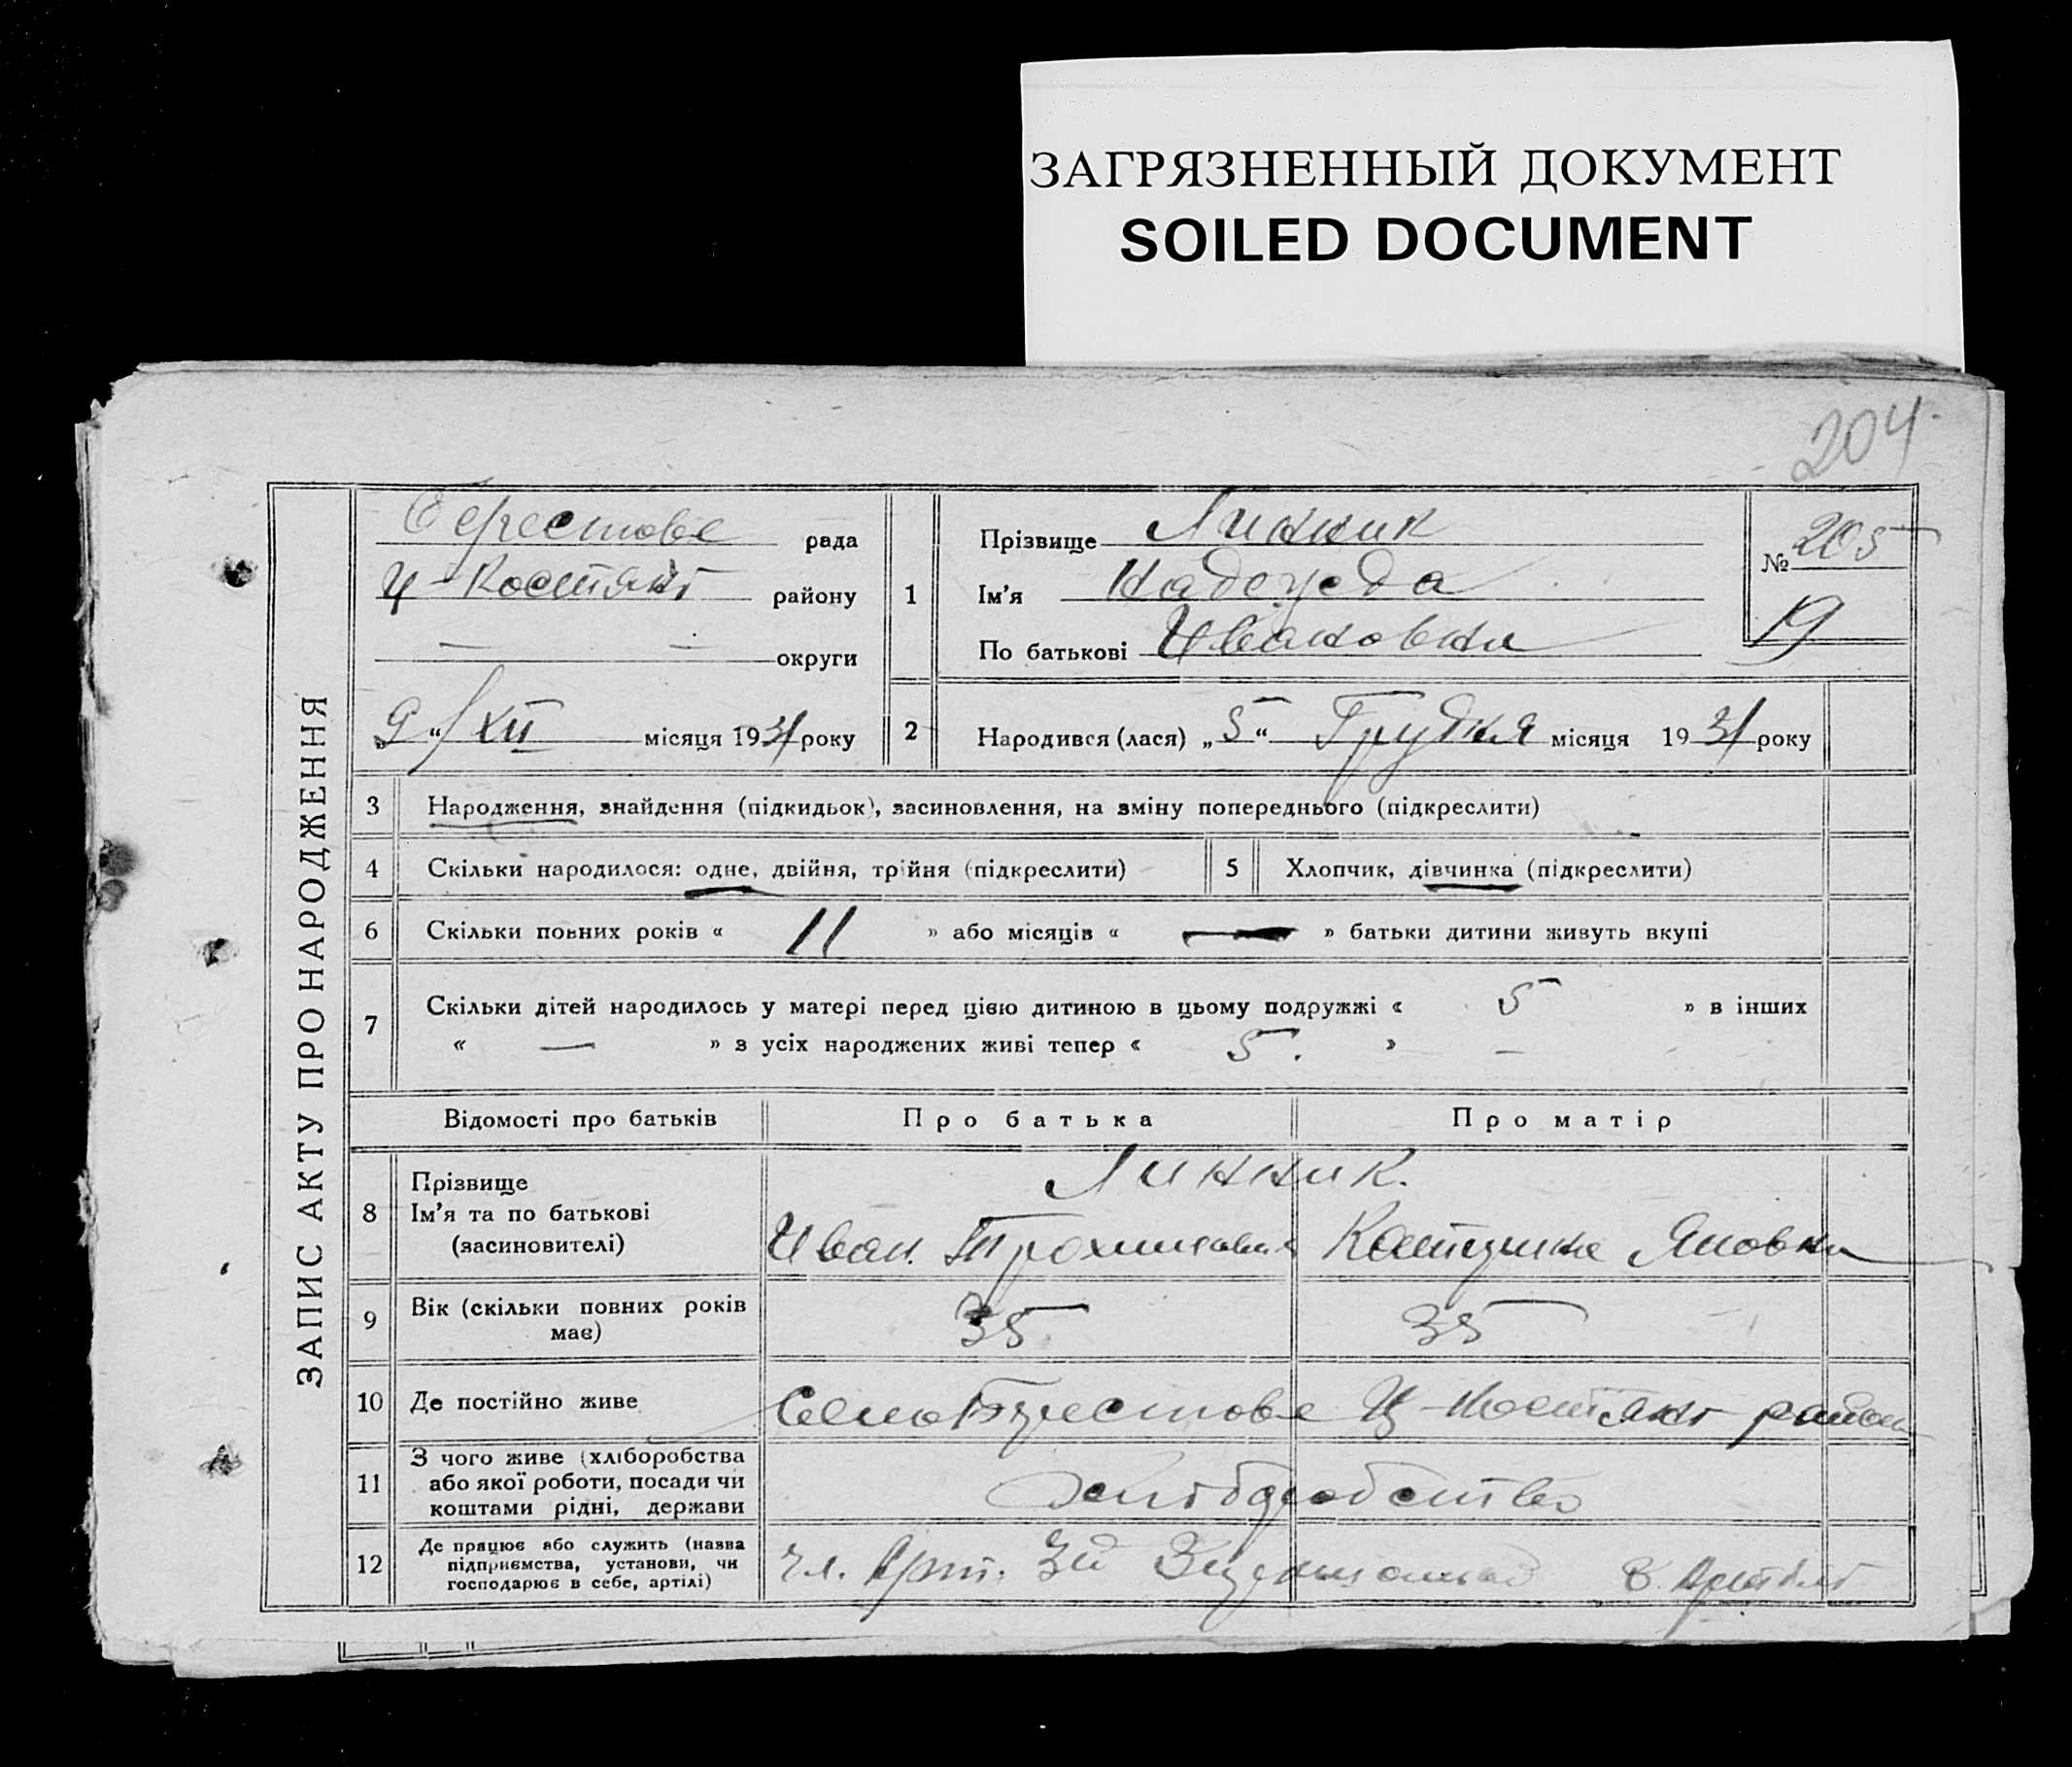 ЗАГРЯЗНЕННЫЙ ДОКУМЕНТ
SOILED DOCUMENT
204
ЗАПИС АКТУ ПРО НАРОДЖЕННЯ
Берестове рада
Ц-Костянт району
— — округи
„9“/XII місяця 1931 року
1
Прізвище Линник
Ім’я Надежда
По батькові Ивановна
№ 205
19
2
Народився (лася) „5“ Грудня місяця 1931 року
3 Народження, знайдення (підкидьок), засиновлення, на зміну попереднього (підкреслити)
4 Скільки народилося: одне, двійня, трійня (підкреслити)
5 Хлопчик, дівчинка (підкреслити)
6 Скільки повних років « 11 » або місяців « — » батьки дитини живуть вкупі
7 Скільки дітей народилось у матері перед цією дитиною в цьому подружжі « 5 » в інших
« — » з усіх народжених живі тепер « 5. » —
Відомості про батьків Про батька Про матір
8 Прізвище
Ім’я та по батькові
(засиновителі)
Линник.
Иван
9 Вік (скільки повних років
має)
35 35
10 Де постійно живе
Село Берестове Ц-Костянт район
11 З чого живе (хліборобства
або якої роботи, посади чи
коштами рідні, держави
Хліборобство
12 Де працює або служить (назва
підприємства, установи, чи
господарює в себе, артілі)
чл. Арт. В Артілі